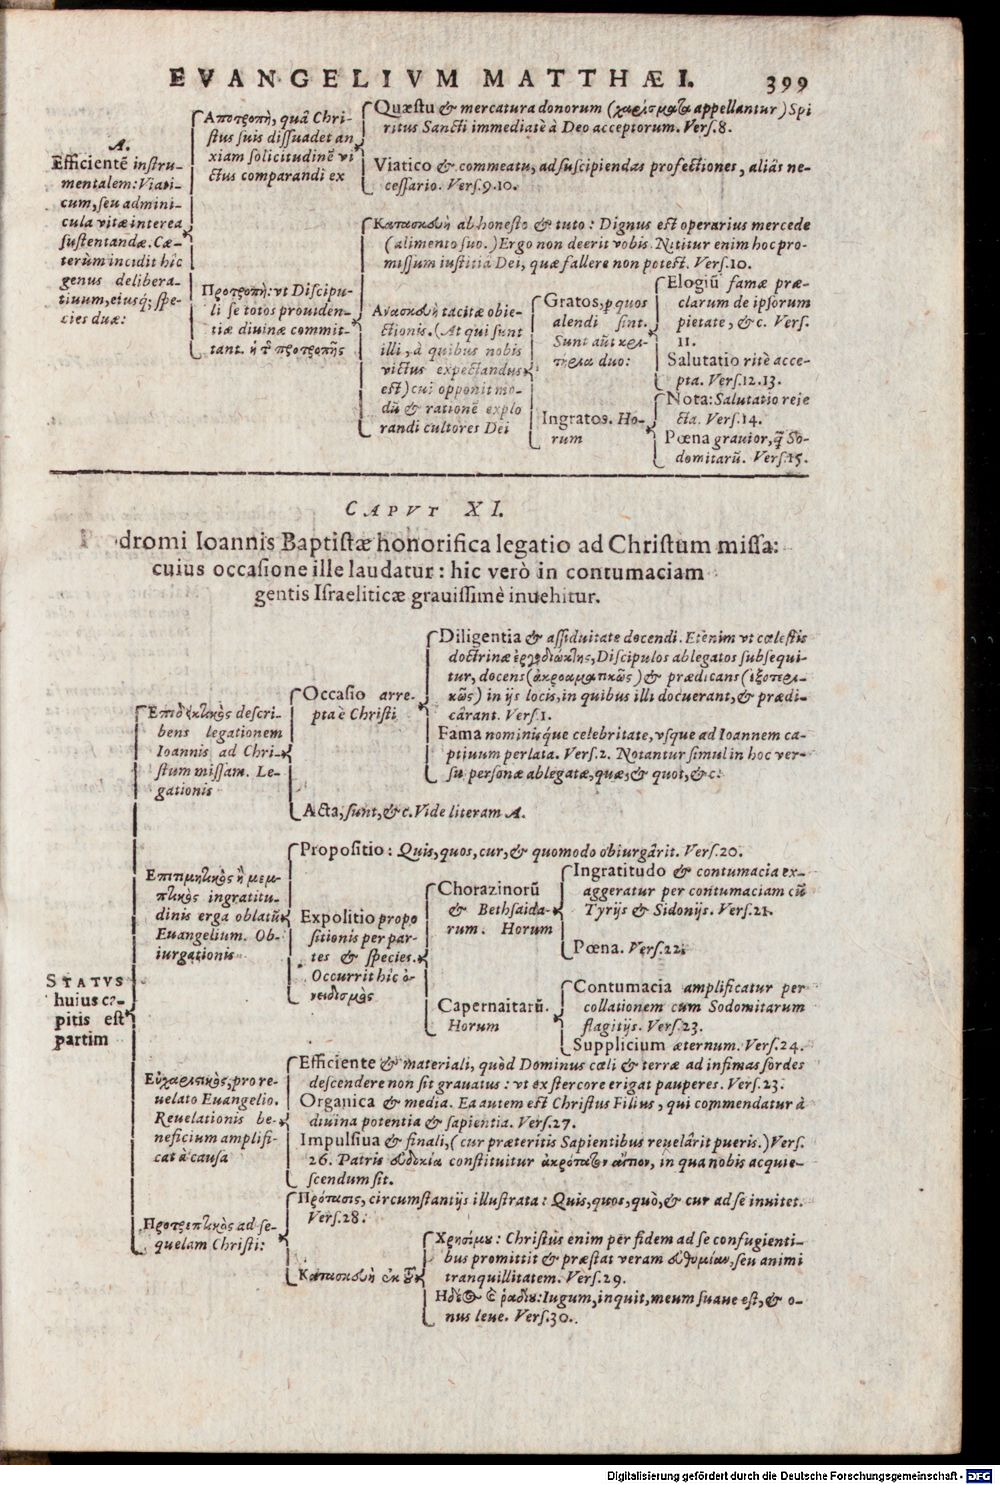 EVANGELIVM MATTHÆI. 399
A.
Efficientē instru-
mentalem: Viati-
cum, seu admini-
cula vitæ interea
sustentandæ. Cæ-
terùm incidit hîc
genus delibera-
tiuum, eiusq; spe-
cies duæ:
Αποτροπὴ, quâ Chri-
stus suis dissuadet an
xiam solicitudinē vi
ctus comparandi ex
Quæstu & mercatura donorum (χαρίσματα appellantur) Spi
ritus Sancti immediatè à Deo acceptorum. Vers.8.
Viatico & commeatu, ad suscipiendas profectiones, aliâs ne-
cessario. Vers.9.10.
Προτροπὴ: vt Discipu-
li se totos prouiden-
tiæ diuinæ commit-
tant. ἡ τ προτροπῆς
Κατασκευὴ ab honesto & tuto: Dignus est operarius mercede
(alimento suo.) Ergo non deerit vobis. Nititur enim hoc pro-
missum iustitiâ Dei, quæ fallere non potest. Vers.10.
Ανασκευὴ tacitæ obie-
ctionis. (At qui sunt
illi, à quibus nobis
victus expectandus
est) cui opponit mo-
dū & rationē explo
randi cultores Dei
Gratos, p quos
alendi sint.
Sunt aūt κρι-
τήρια duo:
Elogiū famæ præ-
clarum de ipsorum
pietate, &c. Vers.
11.
Salutatio ritè acce-
pta. Vers.12.13.
Ingratos. Ho-
rum
Nota: Salutatio reie
cta. Vers.14.
Pœna grauior, q̄ So-
domitarū. Vers.15.
CAPVT XI.
dromi Ioannis Baptistæ honorifica legatio ad Christum missa:
cuius occasione ille laudatur: hic verò in contumaciam
gentis Israeliticæ grauissimè inuehitur.
STATVS
huius ca-
pitis est
partim
Επιδεικτικὸς descri-
bens legationem
Ioannis ad Chri-
stum missam. Le-
gationis
Occasio arre-
pta è Christi
Diligentia & assiduitate docendi. Etenim vt cœlestis
doctrinæ ἐργοδιώκτης, Discipulos ablegatos subsequi-
tur, docens (ἀκροαματικῶς) & prædicans (ἐξοτερι-
κῶς) in ijs locis, in quibus illi docuerant, & prædi-
cârant. Vers.1.
Fama nominisque celebritate, vsque ad Ioannem ca-
ptiuum perlata. Vers.2. Notantur simul in hoc ver-
su personæ ablegatæ, quæ, & quot, &c.
Acta, sunt, &c. Vide literam A.
Επιτιμητικὸς ἢ μεμ-
πτικὸς ingratitu-
dinis erga oblatū
Euangelium. Ob-
iurgationis
Propositio: Quis, quos, cur, & quomodo obiurgârit. Vers.20.
Expolitio propo
sitionis per par-
tes & species.
Occurrit hîc ὀ-
νειδισμὸς
Chorazinorū
& Bethsaida-
rum. Horum
Ingratitudo & contumacia ex-
aggeratur per contumaciam cū
Tyrijs & Sidonijs. Vers.21.
Pœna. Vers.22.
Capernaitarū.
Horum
Contumacia amplificatur per
collationem cum Sodomitarum
flagitijs. Vers.23.
Supplicium æternum. Vers.24.
Εὐχαριστικὸς, pro re-
uelato Euangelio.
Reuelationis be-
neficium amplifi-
cat à causa
Efficiente & materiali, quòd Dominus cœli & terræ ad infimas sordes
descendere non sit grauatus: vt ex stercore erigat pauperes. Vers.23.
Organica & media. Ea autem est Christus Filius, qui commendatur à
diuina potentia & sapientia. Vers.27.
Impulsiua & finali, (cur præteritis Sapientibus reuelârit pueris.) Vers.
26. Patris εὐδοκία constituitur ἀκρότατον αἴτιον, in qua nobis acquie-
scendum sit.
Προτρεπτικὸς ad se-
quelam Christi:
Πρότασις, circumstantijs illustrata: Quis, quos, quò, & cur ad se inuitet.
Vers.28.
Κατασκευὴ ἐκ τοῦ
Χρησίμου: Christus enim per fidem ad se confugienti-
bus promittit & præstat veram εὐθυμίαν, seu animi
tranquillitatem. Vers.29.
Ηδέος & ῥαδίου: Iugum, inquit, meum suaue est, & o-
nus leue. Vers.30.
Digitalisierung gefördert durch die Deutsche Forschungsgemeinschaft - DFG